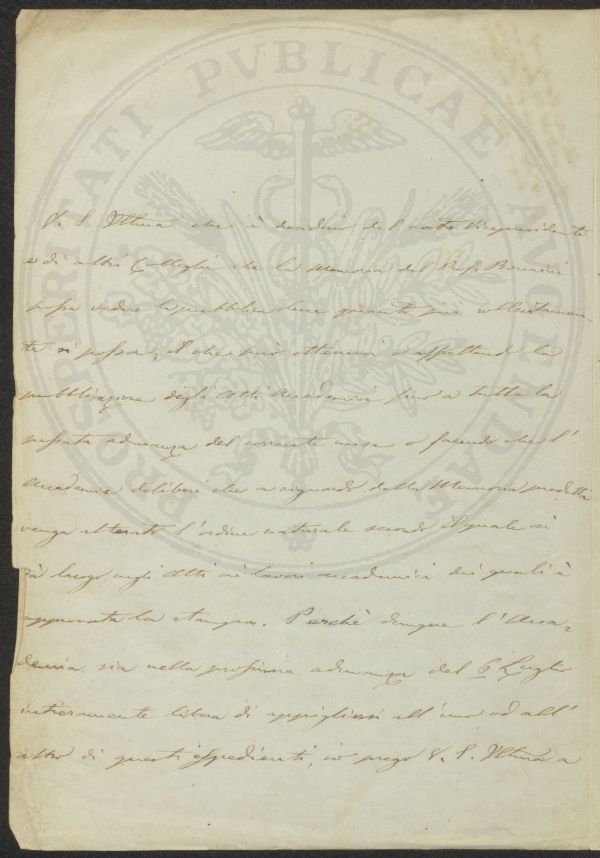 PROSPERITATI PVBLICAE AVGENDAE
V. S. Ill.ma che è desiderio del nostro Vicepresidente
e di altri Colleghi che la Memoria del Prof.
possa vedere la pubblica luce quanto più sollecitamen-
te si possa; il che può ottenersi o aspettando la
pubblicazione degli Atti Accademici fino a tutta la
adunanza del corrente mese o facendo che l'
Accademia deliberi che a riguardo della Memoria predetta
venga alterato l'ordine naturale secondo il quale si
dà luogo negli Atti ai lavori accademici dei quali è
approvata la stampa. Perchè dunque l'Acca-
demia sia nella prossima adunanza del 6 Luglio
intieramente libera di appigliarsi all'uno od all'
altro di questi espedienti, io prego V. S. Ill.ma a